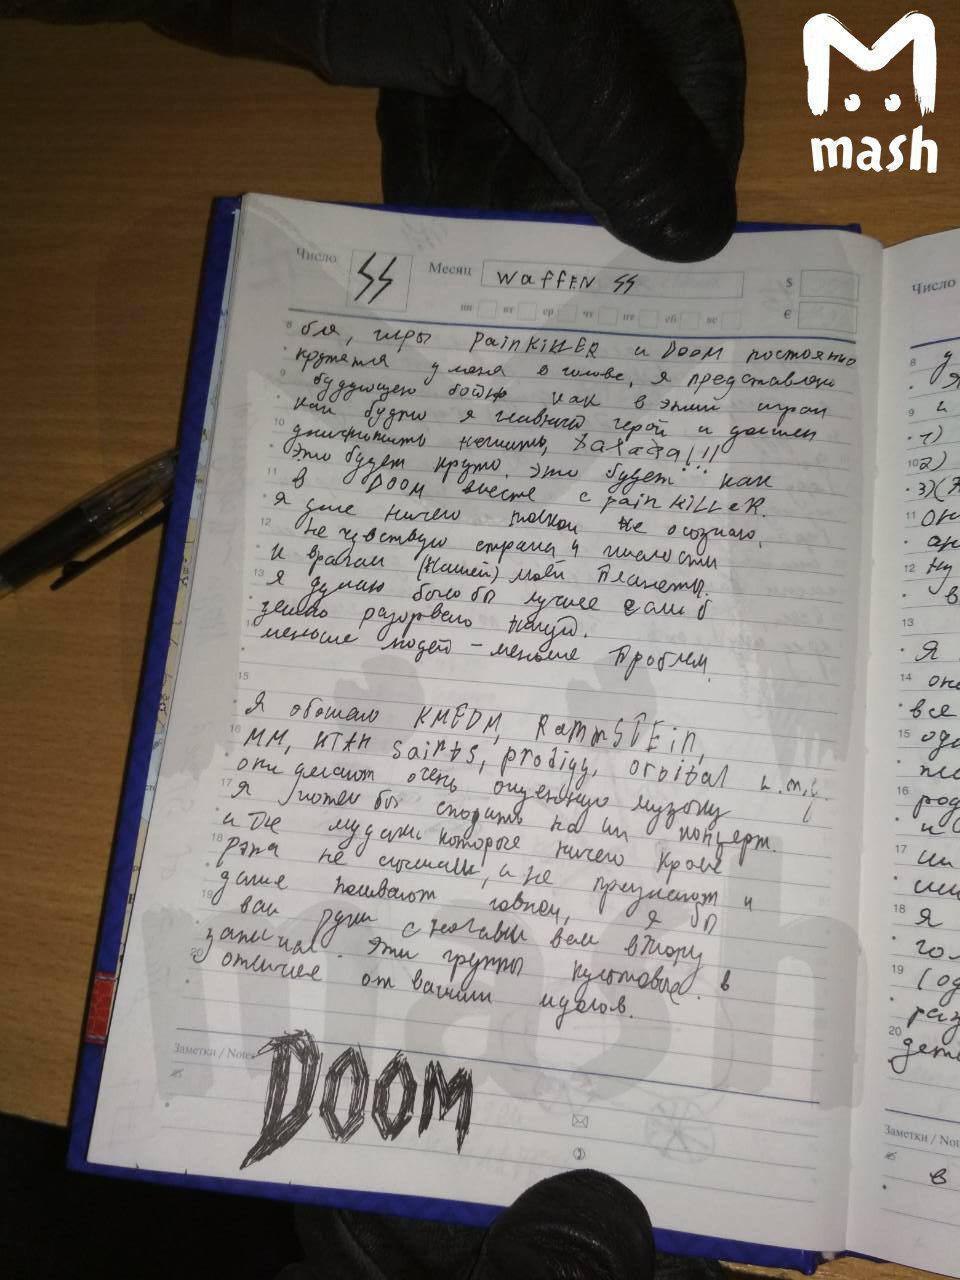 mash
Число
SS
Месяц
Waffen SS
$
€
пн вт ср чт пт сб вс
8 бля, игры PainKiLLER и Doom постоянно
крутятся у меня в голове, я представляю
9 будующею бойню как в этих играх
как будто я главный герой и должен
10 нечисть, Хахаха!!!
это будет круто. это будет как
11 в Doom вместе с pain KiLLeR.
я уже ничего толком не осознаю,
12 не чувствую страха и жалости
к врагам (нашей) моей Планеты.
13 я думаю было бы лучше если б
землю разорвало нахуй.
14 меньше людей - меньше Проблем.
15
Я обожаю KMFDM, RammSTEin,
16 MM, saints, prodigy, orbital и.т.д.
они делают очень охуенную музыку
17 я хотел бы сходить на их концерт.
а те мудаки которые ничего кроме
18 рэпа не слышали, и не признают и
даже называют говном, я бы
19 вам руки с ногами всем
. эти группы культовые. в
20 отличее от ваших идолов.
Заметки / Notes
DOOM
Число
8 у
я
9 и
1)
10 2)
3)
11 он
12 ну
в
13
Я
14 она
все
15
16 род
и
17 им
18 Я
го
19
раз
20 дет
Заметки / Not
в